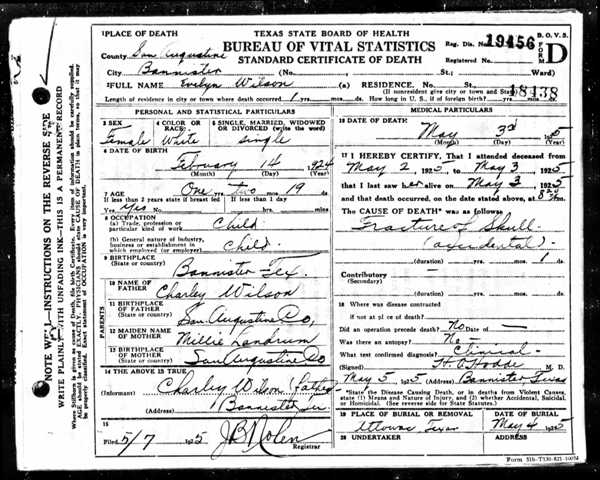 1 PLACE OF DEATH
TEXAS STATE BOARD OF HEALTH
BUREAU OF VITAL STATISTICS
STANDARD CERTIFICATE OF DEATH
B. O. V. S.
FORM D
Reg. Dis. No. 19456
Registered No.
County San Augustine
City Bannister (No. , St.; Ward)
2 FULL NAME Evelyn Wilson (a) RESIDENCE. No. St.;
(If nonresident give city or town and State)
18438
Length of residence in city or town where death occurred 1 yrs. mos. ds. How long in U. S., if of foreign birth? yrs. mos. ds.
PERSONAL AND STATISTICAL PARTICULARS
3 SEX Female
4 COLOR OR RACE White
5 SINGLE, MARRIED, WIDOWED OR DIVORCED (write the word) Single
6 DATE OF BIRTH
February 14 1924
(Month) (Day) (Year)
7 AGE One two 19 ds.
If less than 2 years state if breast fed Yes
If less than 1 day hrs. mins.
8 OCCUPATION
(a) Trade, profession or particular kind of work Child
(b) General nature of industry, business or establishment in which employed (or employer) Child
9 BIRTHPLACE (State or country) Bannister Tex
PARENTS
10 NAME OF FATHER Charley Wilson
11 BIRTHPLACE OF FATHER (State or country) San Augustine Co,
12 MAIDEN NAME OF MOTHER Millie Landrum
13 BIRTHPLACE OF MOTHER (State or country) San Augustine Co
14 THE ABOVE IS TRUE
(Informant) Charley Wilson (Father)
(Address) Bannister Tex
15
Filed 5/7 1925 J B Nolen
Registrar
MEDICAL PARTICULARS
16 DATE OF DEATH
May 3rd 1925
(Month) (Day) (Year)
17 I HEREBY CERTIFY, That I attended deceased from
May 2, 1925, to May 3 1925
that I last saw her alive on May 3, 1925
and that death occurred, on the date stated above, at m.
The CAUSE OF DEATH* was as follows
Fracture of Skull
(accidental)
(duration) yrs. mos. 1 ds.
Contributory —
(Secondary)
(duration) yrs. mos. ds.
18 Where was disease contracted
if not at place of death?
Did an operation precede death? No Date of —
Was there an autopsy? No
What test confirmed diagnosis? Clinical
(Signed) M. D.
May 5, 1925 (Address) Bannister Texas
*State the Disease Causing Death, or in deaths from Violent Causes, state (1) Means and Nature of Injury, and (2) whether Accidental, Suicidal, or Homicidal. (See reverse side for State Statutes.)
19 PLACE OF BURIAL OR REMOVAL
DATE OF BURIAL
May 4 1925
20 UNDERTAKER
ADDRESS
NOTE WELL—INSTRUCTIONS ON THE REVERSE SIDE
WRITE PLAINLY WITH UNFADING INK—THIS IS A PERMANENT RECORD